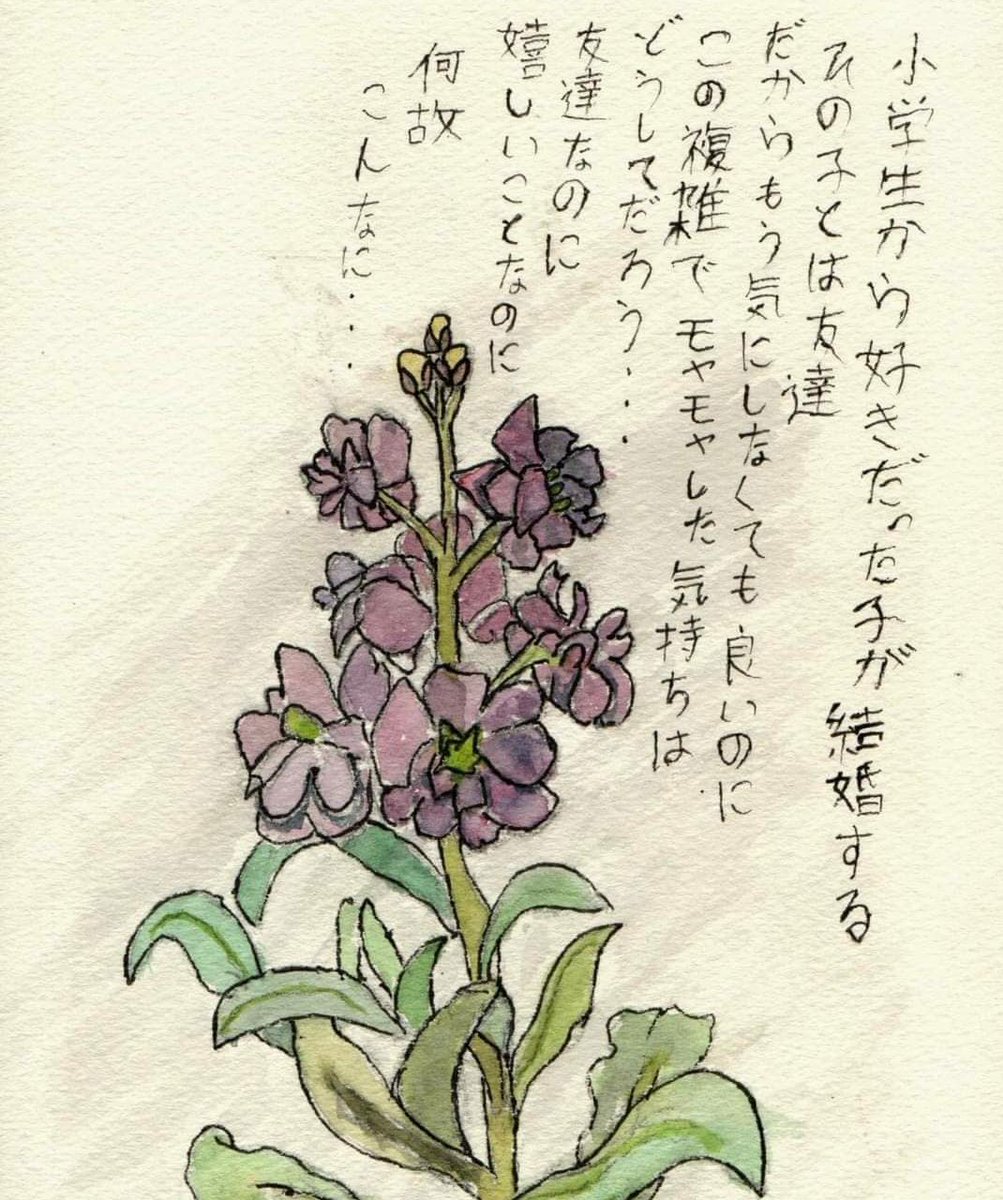 小学生から好きだった子が結婚する
その子とは友達
だからもう気にしなくても良いのに
この複雑でモヤモヤした気持ちは
どうしてだろう・・・
友達なのに
嬉しいことなのに
何故
こんなに・・・